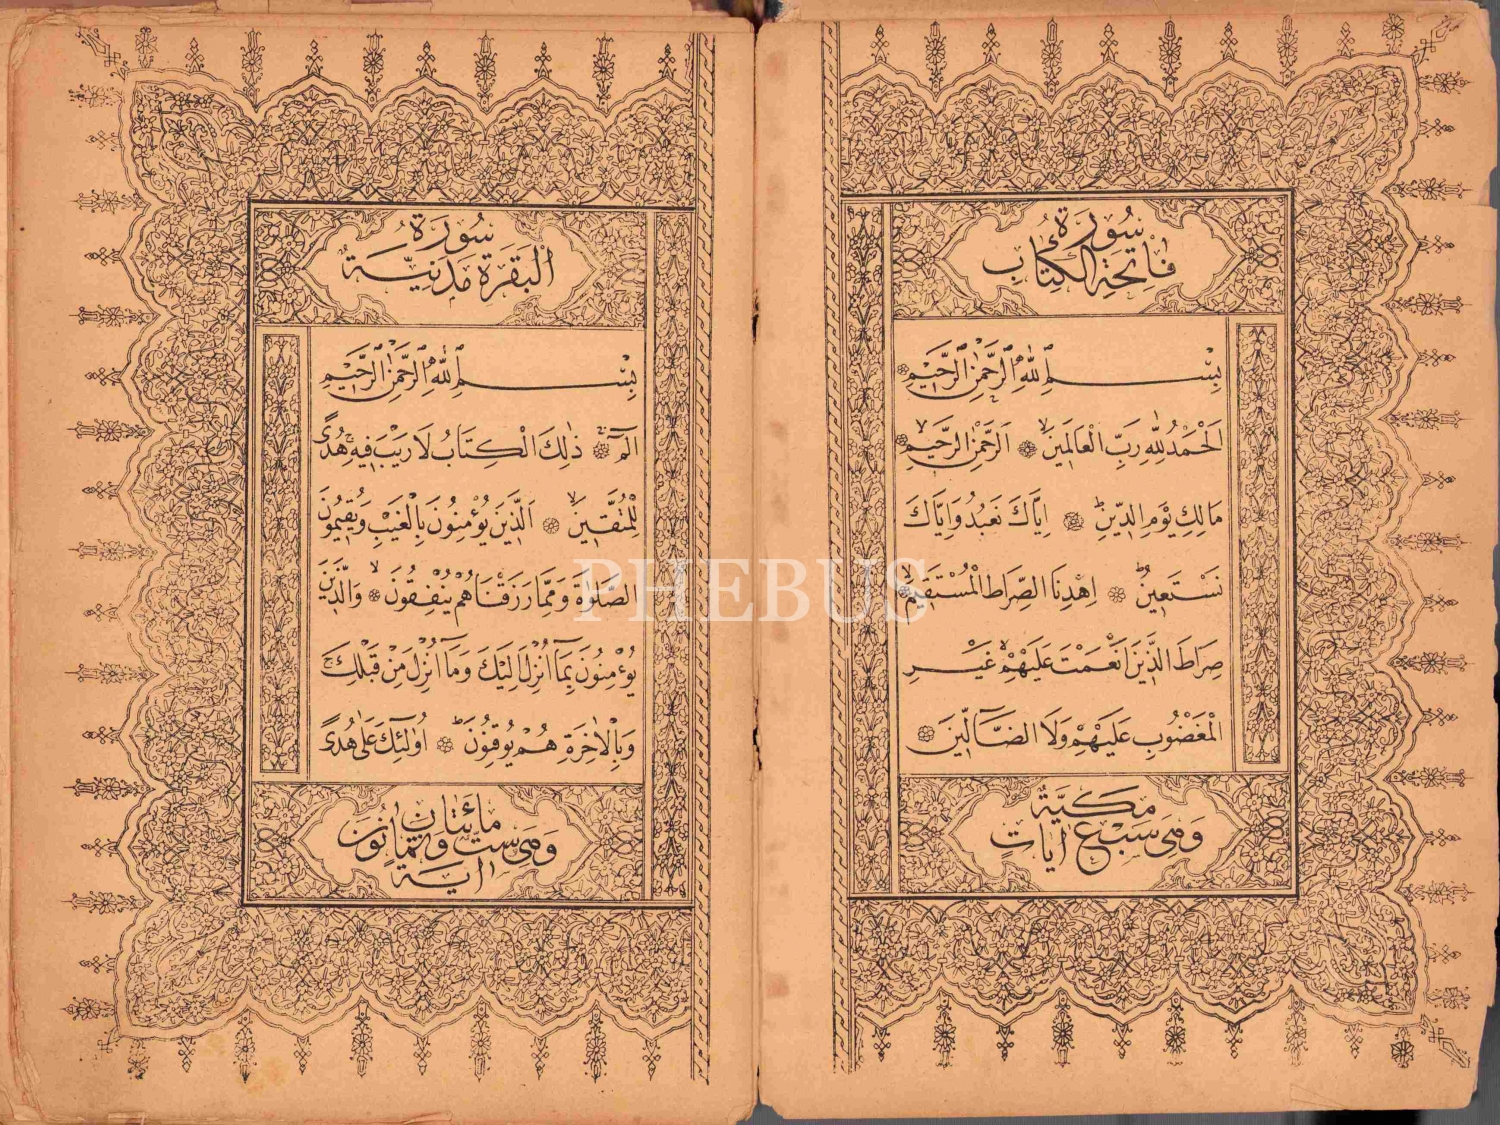 سُورَةُ
فَاتِحَةِ الْكِتَابِ
بِسْمِ اللّٰهِ الرَّحْمٰنِ الرَّحِيمِ
اَلْحَمْدُ لِلّٰهِ رَبِّ الْعَالَمِينَۙ اَلرَّحْمٰنِ الرَّحِيمِۙ
مَالِكِ يَوْمِ الدِّينِۜ اِيَّاكَ نَعْبُدُ وَاِيَّاكَ
نَسْتَعِينُۜ اِهْدِنَا الصِّرَاطَ الْمُسْتَقِيمَۙ
صِرَاطَ الَّذِينَ اَنْعَمْتَ عَلَيْهِمْۙ غَيْرِ
الْمَغْضُوبِ عَلَيْهِمْ وَلَا الضَّٓالِّينَ
مَكِّيَّةٌ
وَهِيَ سَبْعُ اٰيَاتٍ
سُورَةُ
الْبَقَرَةِ مَدَنِيَّةٌ
بِسْمِ اللّٰهِ الرَّحْمٰنِ الرَّحِيمِ
الٓمٓۚ ذٰلِكَ الْكِتَابُ لَا رَيْبَ فِيهِۚ هُدًى
لِلْمُتَّقِينَۙ اَلَّذِينَ يُؤْمِنُونَ بِالْغَيْبِ وَيُقِيمُونَ
الصَّلٰوةَ وَمِمَّا رَزَقْنَاهُمْ يُنْفِقُونَۙ وَالَّذِينَ
يُؤْمِنُونَ بِمَٓا اُنْزِلَ اِلَيْكَ وَمَٓا اُنْزِلَ مِنْ قَبْلِكَۚ
وَبِالْاٰخِرَةِ هُمْ يُوقِنُونَۜ اُولٰٓئِكَ عَلٰى هُدًى
مِائَتَانِ
وَهِيَ سِتٌّ وَثَمَانُونَ
اٰيَةً
PHEBUS